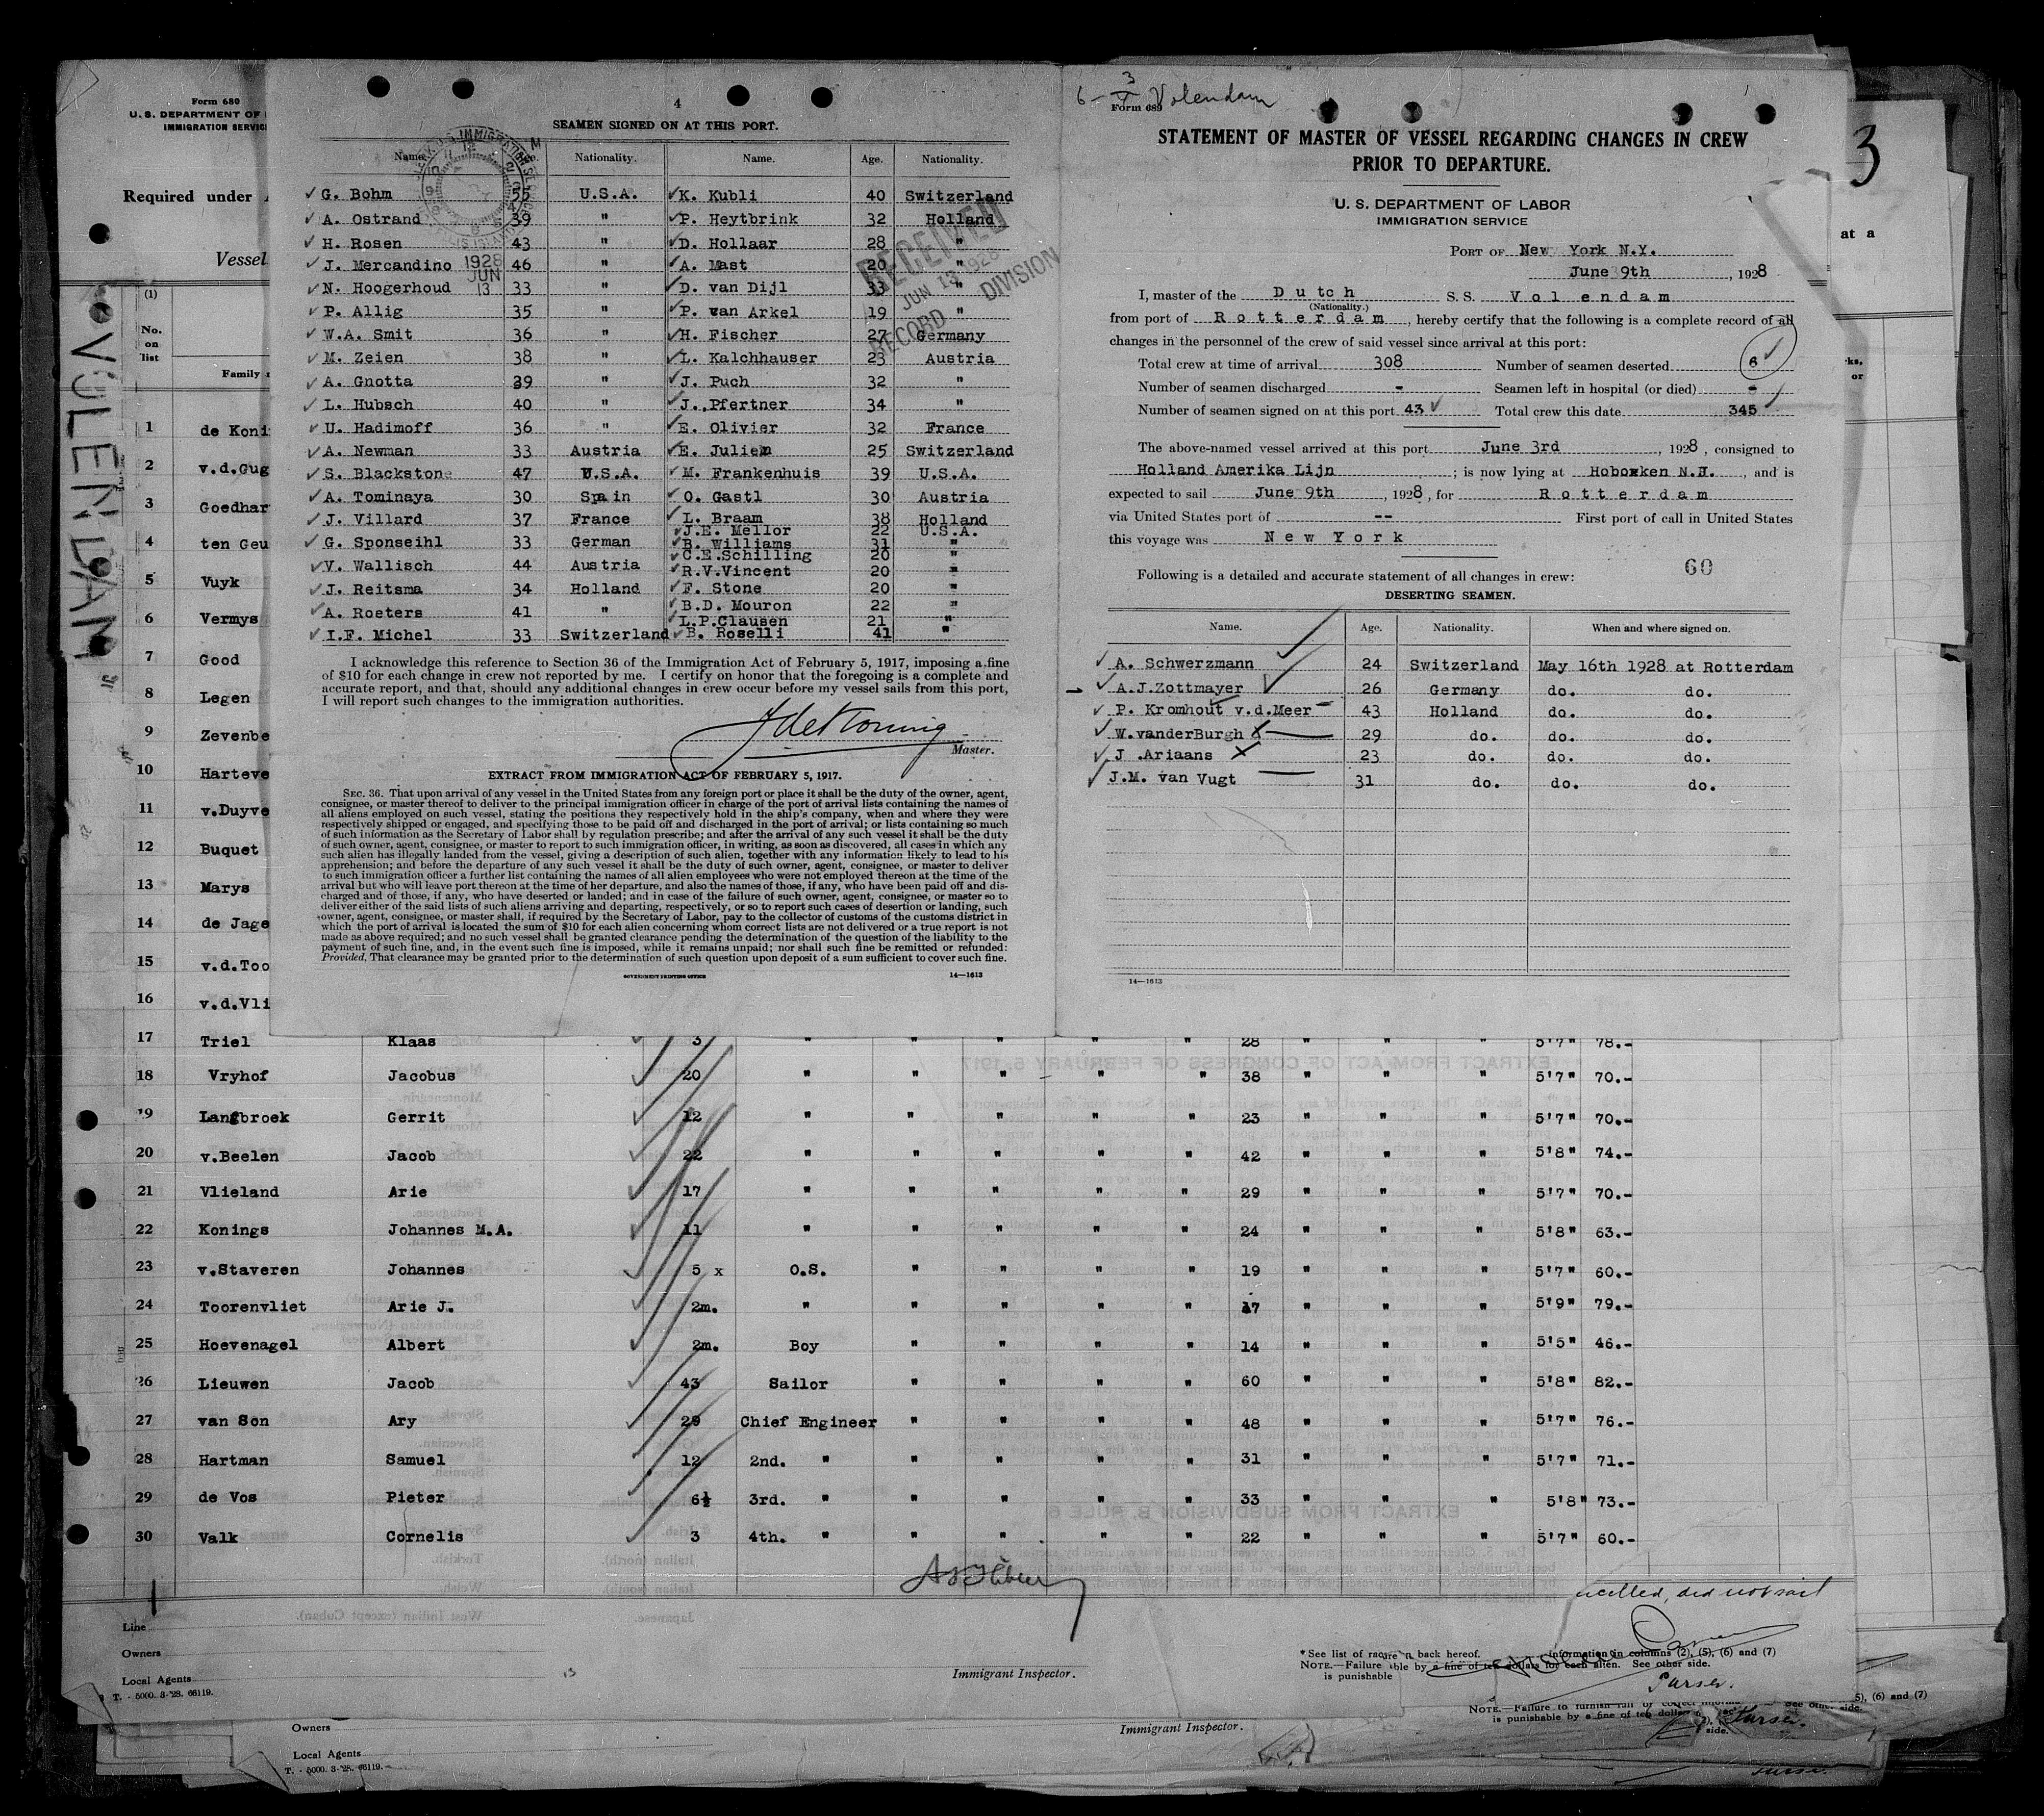 Form 680
U. S. DEPARTMENT OF
IMMIGRATION SERVICE
Required under
Vessel
VOLENDAM
(1)
No. on list
Family
1 de Koni
2 v.d.Gug
3 Goedhar
4 ten Geu
5 Vuyk
6 Vermys
7 Good
8 Legen
9 Zevenbe
10 Harteve
11 v.Duyve
12 Buquet
13 Marys
14 de Jage
15 v.d.Too
16 v.d.Vli
4
SEAMEN SIGNED ON AT THIS PORT.
Name. Age. Nationality. Name. Age. Nationality.
G. Bohm 55 U.S.A. K. Kubli 40 Switzerland
A. Ostrand 39 " P. Heytbrink 32 Holland
H. Rosen 43 " D. Hollaar 28 "
J. Mercandino 46 " A. Mast 20 "
N. Hoogerhoud 33 " D. van Dijl 33 "
P. Allig 35 " P. van Arkel 19 "
W.A. Smit 36 " H. Fischer 27 Germany
M. Zeien 38 " L. Kalchhauser 23 Austria
A. Gnotta 39 " J. Puch 32 "
L. Hubsch 40 " J. Pfertner 34 "
U. Hadimoff 36 " E. Olivier 32 France
A. Newman 33 Austria E. Julien 25 Switzerland
S. Blackstone 47 U.S.A. M. Frankenhuis 39 U.S.A.
A. Tominaya 30 Spain O. Gastl 30 Austria
J. Villard 37 France L. Braam 38 Holland
J.E. Mellor 22 U.S.A.
G. Sponseihl 33 German R. Williams 31 "
C.E.Schilling 20
V. Wallisch 44 Austria R.V.Vincent 20 "
J. Reitsma 34 Holland F. Stone 20 "
A. Roeters 41 " B.D. Mouron 22 "
L.P.Clausen 21 "
I.F. Michel 33 Switzerland B. Roselli 41 "
1928 JUN 13
RECEIVED
JUN 13 1928
RECORD DIVISION
I acknowledge this reference to Section 36 of the Immigration Act of February 5, 1917, imposing a fine
of $10 for each change in crew not reported by me. I certify on honor that the foregoing is a complete and
accurate report, and that, should any additional changes in crew occur before my vessel sails from this port,
I will report such changes to the immigration authorities.
JdeKoning
Master.
EXTRACT FROM IMMIGRATION ACT OF FEBRUARY 5, 1917.
SEC. 36. That upon arrival of any vessel in the United States from any foreign port or place it shall be the duty of the owner, agent,
consignee, or master thereof to deliver to the principal immigration officer in charge of the port of arrival lists containing the names of
all aliens employed on such vessel, stating the positions they respectively hold in the ship's company, when and where they were
respectively shipped or engaged, and specifying those to be paid off and discharged in the port of arrival; or lists containing so much
of such information as the Secretary of Labor shall by regulation prescribe; and after the arrival of any such vessel it shall be the duty
of such owner, agent, consignee, or master to report to such immigration officer, in writing, as soon as discovered, all cases in which any
such alien has illegally landed from the vessel, giving a description of such alien, together with any information likely to lead to his
apprehension; and before the departure of any such vessel it shall be the duty of such owner, agent, consignee, or master to deliver
to such immigration officer a further list containing the names of all alien employees who were not employed thereon at the time of the
arrival but who will leave port thereon at the time of her departure, and also the names of those, if any, who have been paid off and dis-
charged and of those, if any, who have deserted or landed; and in case of the failure of such owner, agent, consignee, or master so to
deliver either of the said lists of such aliens arriving and departing, respectively, or so to report such cases of desertion or landing, such
owner, agent, consignee, or master shall, if required by the Secretary of Labor, pay to the collector of customs of the customs district in
which the port of arrival is located the sum of $10 for each alien concerning whom correct lists are not delivered or a true report is not
made as above required; and no such vessel shall be granted clearance pending the determination of the question of the liability to the
payment of such fine, and, in the event such fine is imposed, while it remains unpaid; nor shall such fine be remitted or refunded:
Provided, That clearance may be granted prior to the determination of such question upon deposit of a sum sufficient to cover such fine.
GOVERNMENT PRINTING OFFICE 14—1613
6-3 Volendam
Form 689
STATEMENT OF MASTER OF VESSEL REGARDING CHANGES IN CREW
PRIOR TO DEPARTURE.
U. S. DEPARTMENT OF LABOR
IMMIGRATION SERVICE
PORT OF New York N.Y.
June 9th, 1928
I, master of the Dutch S. S. Volendam
(Nationality.)
from port of Rotterdam, hereby certify that the following is a complete record of all
changes in the personnel of the crew of said vessel since arrival at this port:
Total crew at time of arrival 308 Number of seamen deserted 6
Number of seamen discharged - Seamen left in hospital (or died) -
Number of seamen signed on at this port 43 Total crew this date 345
The above-named vessel arrived at this port June 3rd, 1928, consigned to
Holland Amerika Lijn; is now lying at Hoboken N.J., and is
expected to sail June 9th, 1928, for Rotterdam
via United States port of -- First port of call in United States
this voyage was New York
Following is a detailed and accurate statement of all changes in crew: 60
DESERTING SEAMEN.
Name. Age. Nationality. When and where signed on.
A. Schwerzmann 24 Switzerland May 16th 1928 at Rotterdam
A.J.Zottmayer 26 Germany do. do.
P. Kromhout v.d.Meer 43 Holland do. do.
W.vanderBurgh 29 do. do. do.
J .Ariaans 23 do. do. do.
J.M. van Vugt 31 do. do. do.
14—1613
3
at a
or
17 Triel Klaas 3 " " " " " 28 " " " 5'7" 78.-
18 Vryhof Jacobus 20 " " " " " 38 " " " 5'7" 70.-
19 Langbroek Gerrit 12 " " " " " 23 " " " 5'7" 70.-
20 v.Beelen Jacob 22 " " " " " 42 " " " 5'8" 74.-
21 Vlieland Arie 17 " " " " " 29 " " " 5'7" 70.-
22 Konings Johannes M.A. 11 " " " " " 24 " " " 5'8" 63.-
23 v.Staveren Johannes 5 x O.S. " " " " 19 " " " 5'7" 60.-
24 Toorenvliet Arie J. 2m. " " " " " 17 " " " 5'9" 79.-
25 Hoevenagel Albert 2m. Boy " " " " 14 " " " 5'5" 46.-
26 Lieuwen Jacob 43 Sailor " " " " 60 " " " 5'8" 82.-
27 van Son Ary 29 Chief Engineer " " " " 48 " " " 5'7" 76.-
28 Hartman Samuel 12 2nd. " " " " " 31 " " " 5'7" 71.-
29 de Vos Pieter 6½ 3rd. " " " " " 33 " " " 5'8" 73.-
30 Valk Cornelis 3 4th. " " " " " 22 " " " 5'7" 60.-
Line
Owners
Local Agents
T. - 5000. 3-'28. 66119.
Immigrant Inspector.
ncelled, did not sail
* See list of races on back hereof. information in columns (2), (5), (6) and (7)
NOTE.—Failure able by a fine of ten dollars for each alien. See other side.
is punishable
Purser.
Owners
Local Agents
T. - 5000. 3-'28. 66119.
Immigrant Inspector.
NOTE.—Failure to furnish full or correct 5), (6) and (7)
is punishable by a fine of ten dollars See other side.
side.
Purser.
Purser.